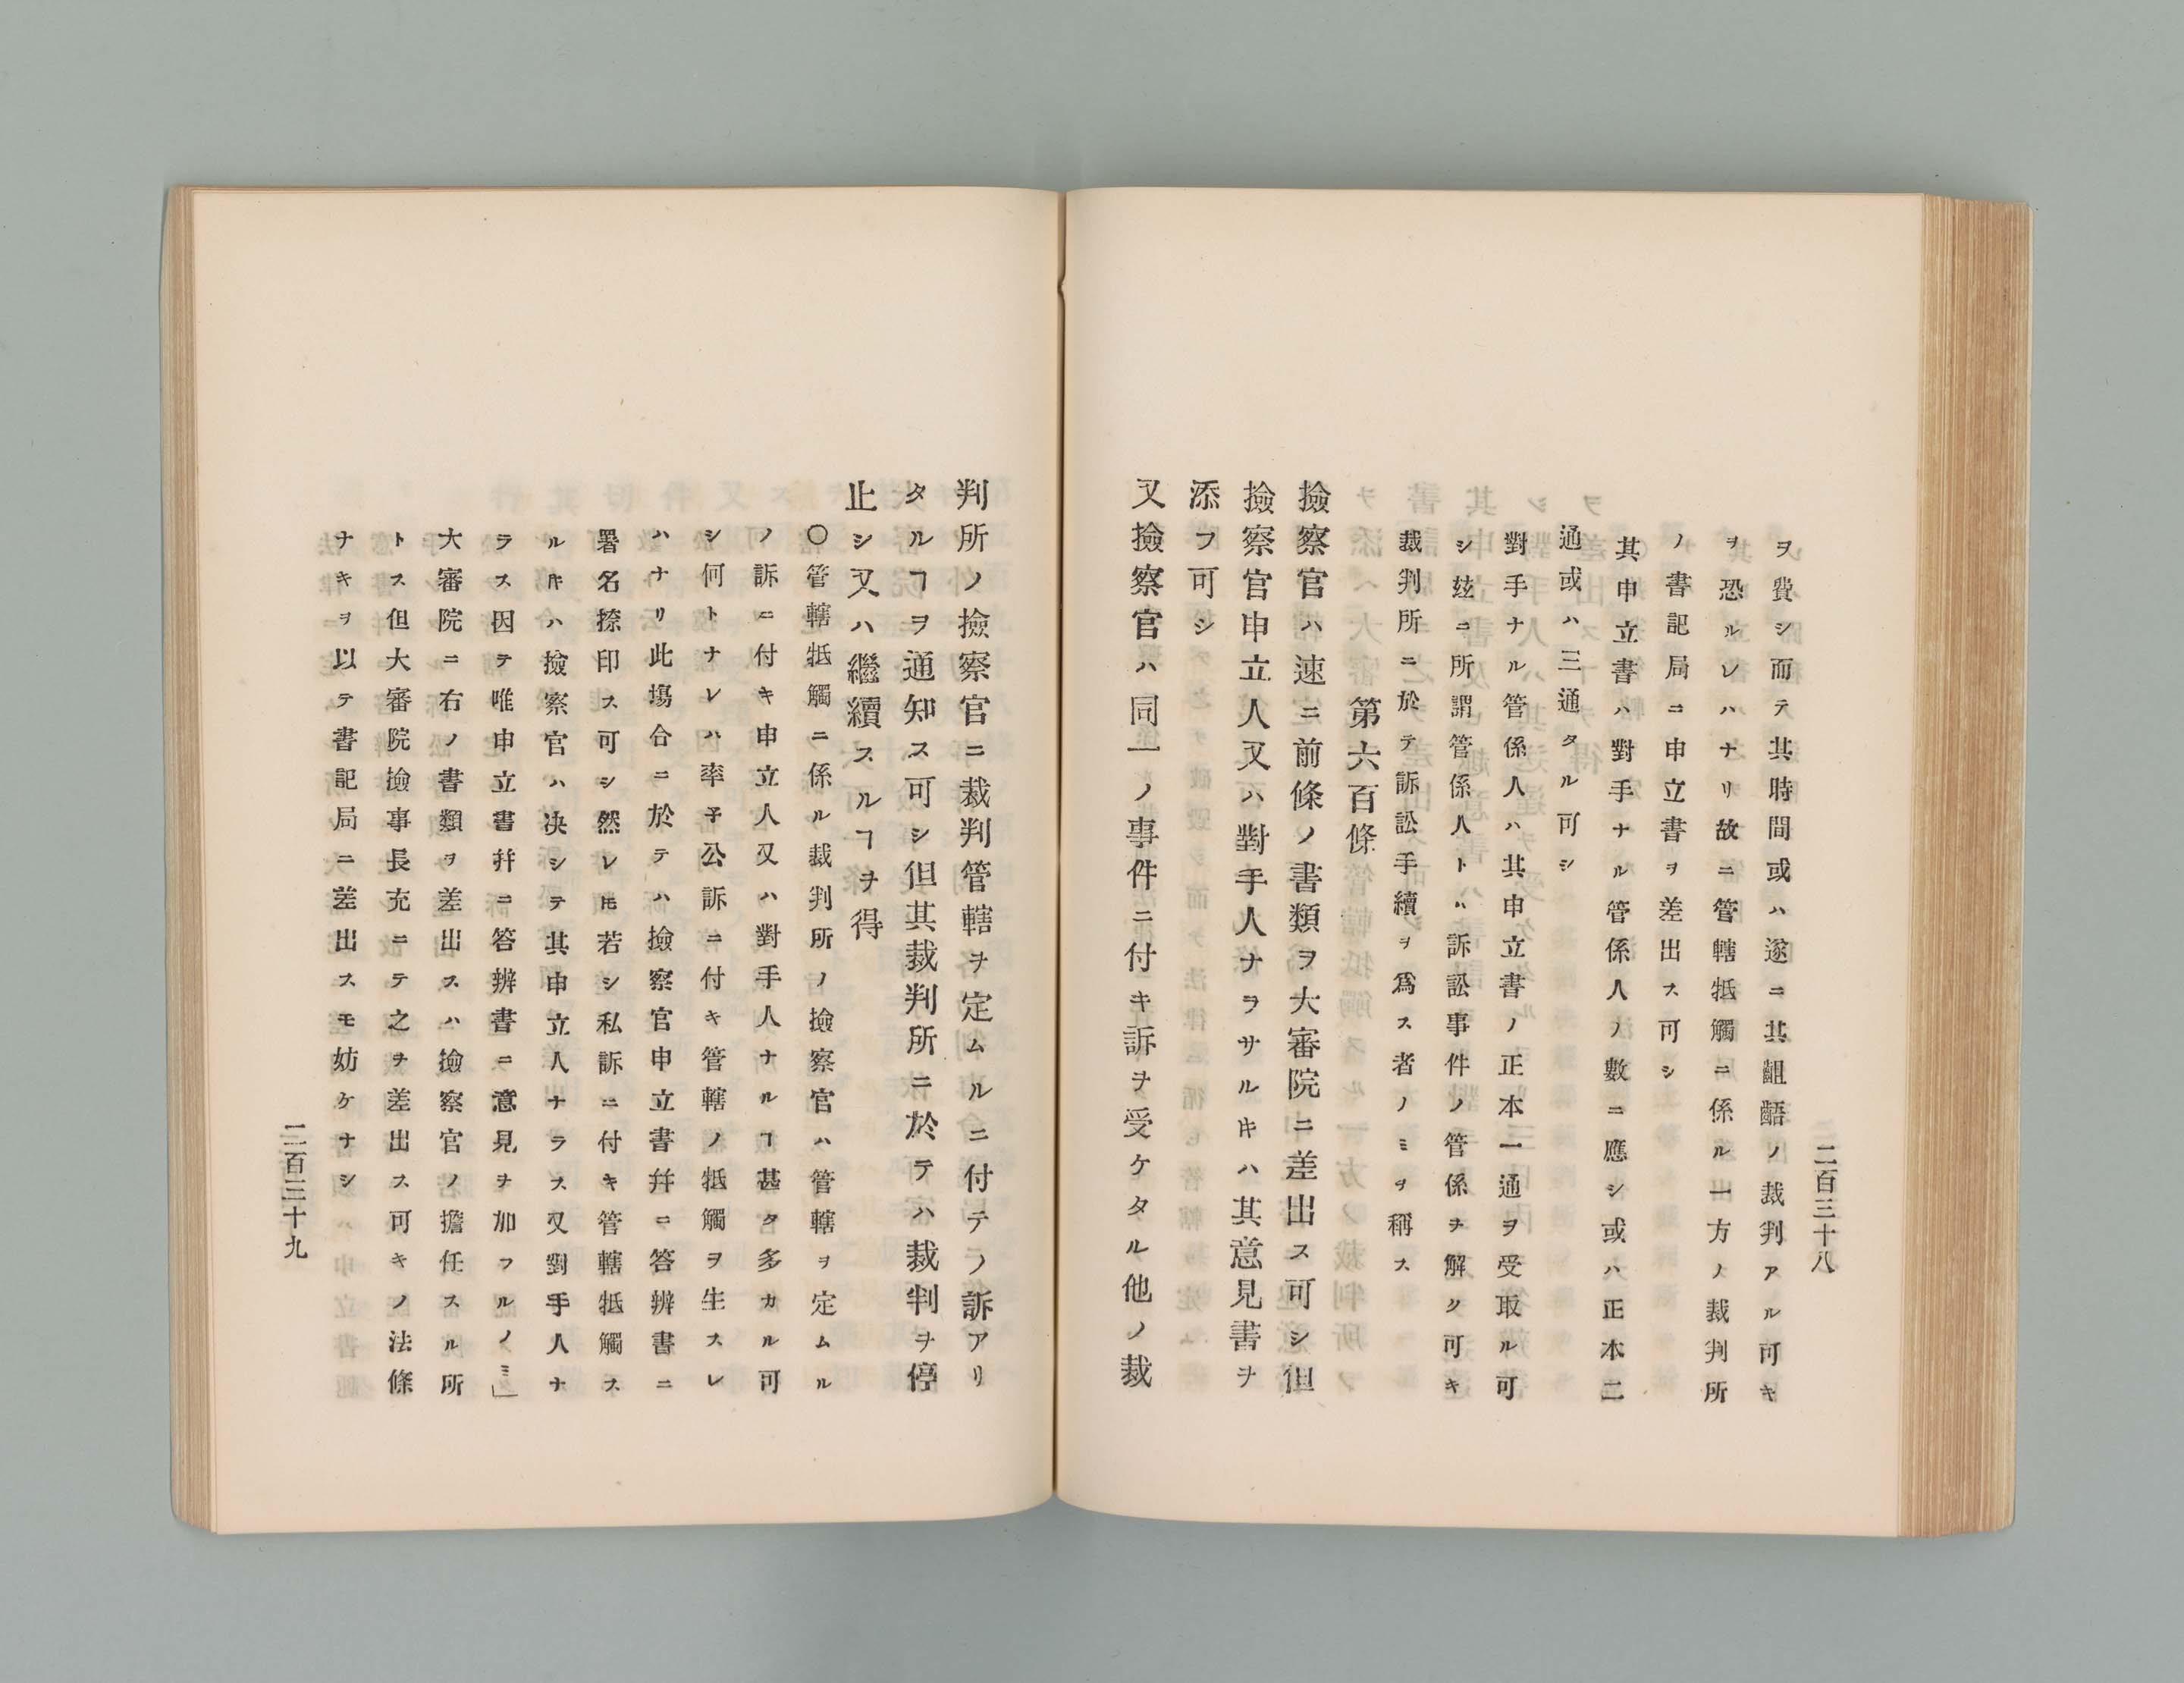 二百三十八
ヲ費シ而テ其時間或ハ遂ニ其齟齬ノ裁判アル可キ
ヲ恐ルレハナリ故ニ管轄牴觸ニ係ル一方ノ裁判所
ノ書記局ニ申立書ヲ差出ス可シ
其申立書ハ對手ナル管係人ノ數ニ應シ或ハ正本二
通或ハ三通タル可シ
對手ナル管係人ハ其申立書ノ正本一通ヲ受取ル可
シ玆ニ所謂管係人トハ訴訟事件ノ管係ヲ解ク可キ
裁判所ニ於テ訴訟手續ヲ爲ス者ノミヲ稱ス
第六百條
撿察官ハ速ニ前條ノ書類ヲ大審院ニ差出ス可シ但
撿察官申立人又ハ對手人ナラサルキハ其意見書ヲ
添フ可シ
又撿察官ハ同一ノ事件ニ付キ訴ヲ受ケタル他ノ裁
判所ノ撿察官ニ裁判管轄ヲ定ムルニ付テノ訴アリ
タルヿヲ通知ス可シ但其裁判所ニ於テハ裁判ヲ停
止シ又ハ繼續スルヿヲ得
〇管轄牴觸ニ係ル裁判所ノ撿察官ハ管轄ヲ定ムル
ノ訴ニ付キ申立人又ハ對手人ナルヿ甚タ多カル可
シ何トナレハ率子公訴ニ付キ管轄ノ牴觸ヲ生スレ
ハナリ此塲合ニ於テハ撿察官申立書幷ニ答辨書ニ
署名捺印ス可シ然レ𪜈若シ私訴ニ付キ管轄牴觸ス
ルキハ撿察官ハ决シテ其申立人ナラス又對手人ナ
ラス因テ唯申立書幷ニ答辨書ニ意見ヲ加フルノミ」
大審院ニ右ノ書類ヲ差出スハ撿察官ノ擔任スル所
トス但大審院撿事長充ニテ之ヲ差出ス可キノ法條
ナキヲ以テ書記局ニ差出スモ妨ケナシ
二百三十九